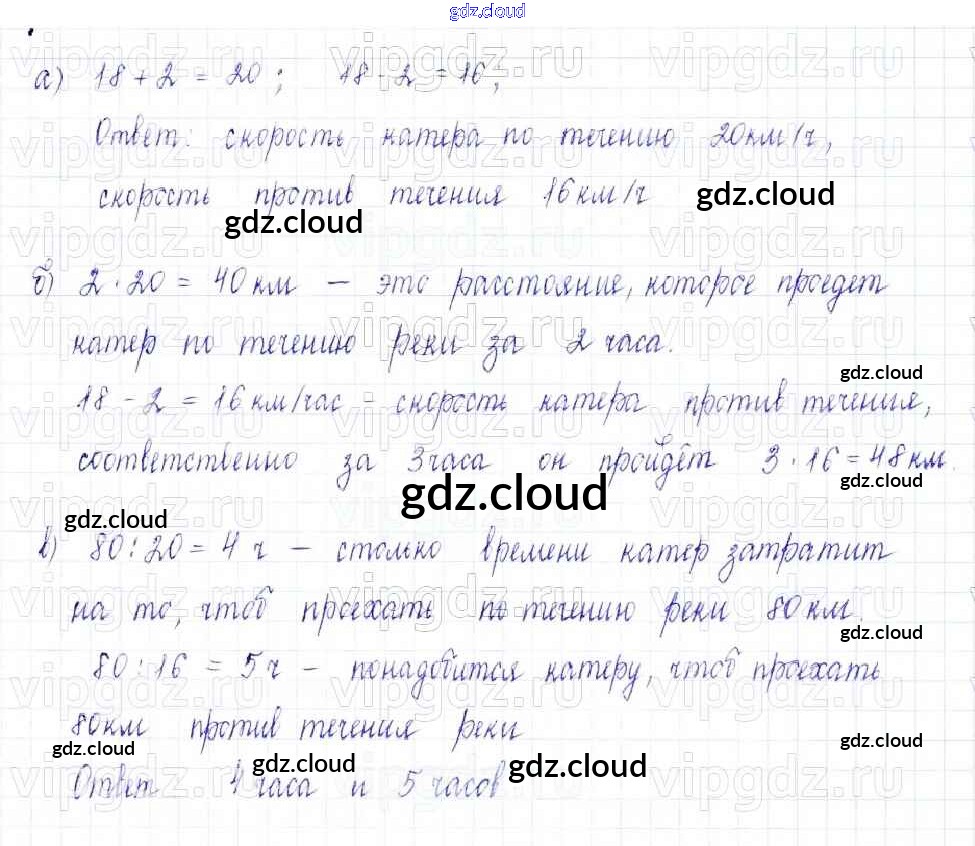 gdz.cloud
а) 18 + 2 = 20 ; 18 - 2 = 16 ;
Ответ: скорость катера по течению 20 км/ч,
скорость против течения 16 км/ч
gdz.cloud
gdz.cloud
б) 2 · 20 = 40 км — это расстояние, которое проедет
катер по течению реки за 2 часа.
gdz.cloud
18 - 2 = 16 км/час - скорость катера против течения,
соответственно за 3 часа он пройдёт 3 · 16 = 48 км.
gdz.cloud
gdz.cloud
gdz.cloud
в) 80 : 20 = 4 ч — столько времени катер затратит
на то, чтоб проехать по течению реки 80 км.
gdz.cloud
80 : 16 = 5 ч — понадобится катеру, чтоб проехать
80 км против течения реки
gdz.cloud
gdz.cloud
gdz.cloud
gdz.cloud
Ответ 4 часа и 5 часов
vipgdz.ru